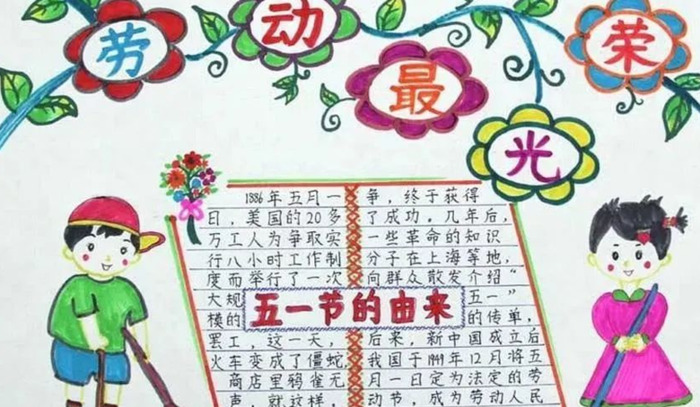 劳动最光荣
五一节的由来
1886年五月一
日，美国的20多
万工人为争取实
行八小时工作制
度而举行了一次
大规
模的
罢工，这一天，
火车变成了僵蛇，
商店里鸦雀无
声，就这样，
争，终于获得
了成功。几年后，
一些革命的知识
分子在上海等地，
向群众散发介绍“
五一”
的传单，
后来，新中国成立后
我国于1949年12月将五
月一日定为法定的劳
动节，成为劳动人民